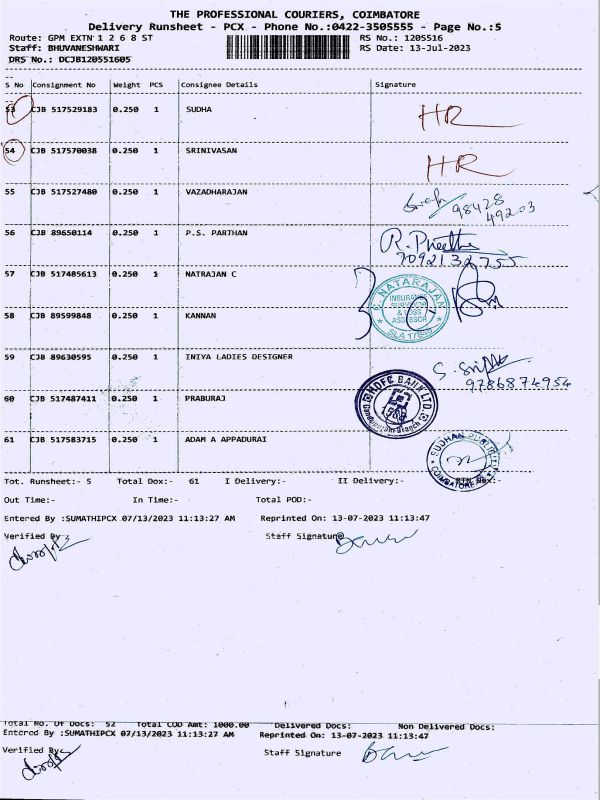 THE PROFESSIONAL COURIERS, COIMBATORE
Delivery Runsheet - PCX - Phone No.:0422-3505555 - Page No.:5
Route: GPM EXTN 1 2 6 8 ST RS No.: 1205516
Staff: BHUVANESHWARI RS Date: 13-Jul-2023
DRS No.: DCJB120551605
S No Consignment No Weight PCS Consignee Details Signature
53 CJB 517529183 0.250 1 SUDHA HR
54 CJB 517570038 0.250 1 SRINIVASAN HR
55 CJB 517527480 0.250 1 VAZADHARAJAN 98428
49203
56 CJB 89650114 0.250 1 P.S. PARTHAN R. Preetha
7092132755
57 CJB 517485613 0.250 1 NATRAJAN C
C. NATARAJAN
INSURANCE
SURVEYOR
& LOSS
ASSESSOR
58 CJB 89599848 0.250 1 KANNAN
59 CJB 89630595 0.250 1 INIYA LADIES DESIGNER
9786874954
60 CJB 517487411 0.250 1 PRABURAJ
HDFC BANK LTD
Branch
61 CJB 517583715 0.250 1 ADAM A APPADURAI
COIMBATORE
Tot. Runsheet:- 5 Total Dox:- 61 I Delivery:- II Delivery:-
Out Time:- In Time:- Total POD:-
Entered By :SUMATHIPCX 07/13/2023 11:13:27 AM Reprinted On: 13-07-2023 11:13:47
Verified By Staff Signature
Total No. Of Docs: 52 Total COD Amt: 1000.00 Delivered Docs: Non Delivered Docs:
Entered By :SUMATHIPCX 07/13/2023 11:13:27 AM Reprinted On: 13-07-2023 11:13:47
Verified By Staff Signature